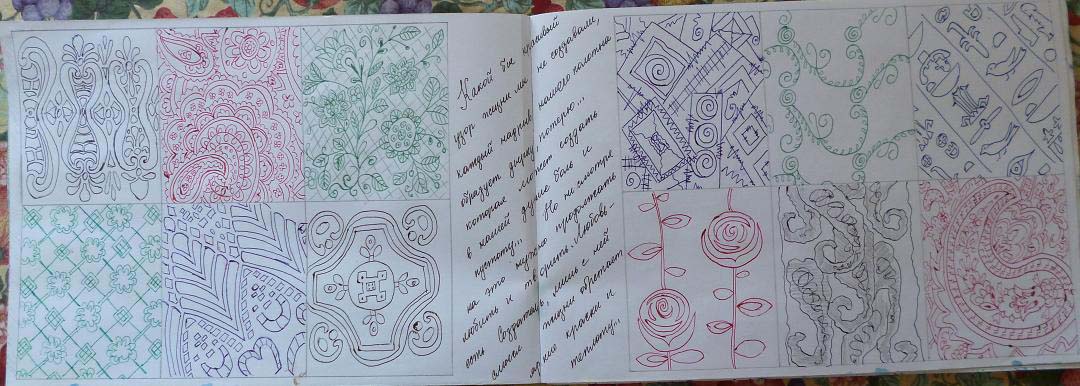 Какой бы красивый
узор жизни мы не создавали,
каждый надрыв нашего полотна
образует дыру, потерю...
которая может создать
в нашей душе боль и
пустоту... Но ни смотря
на это нужно продолжать
любить и творить. Любовь –
есть Создатель, лишь с ней
смысл жизни обретает
яркие краски и
теплоту...